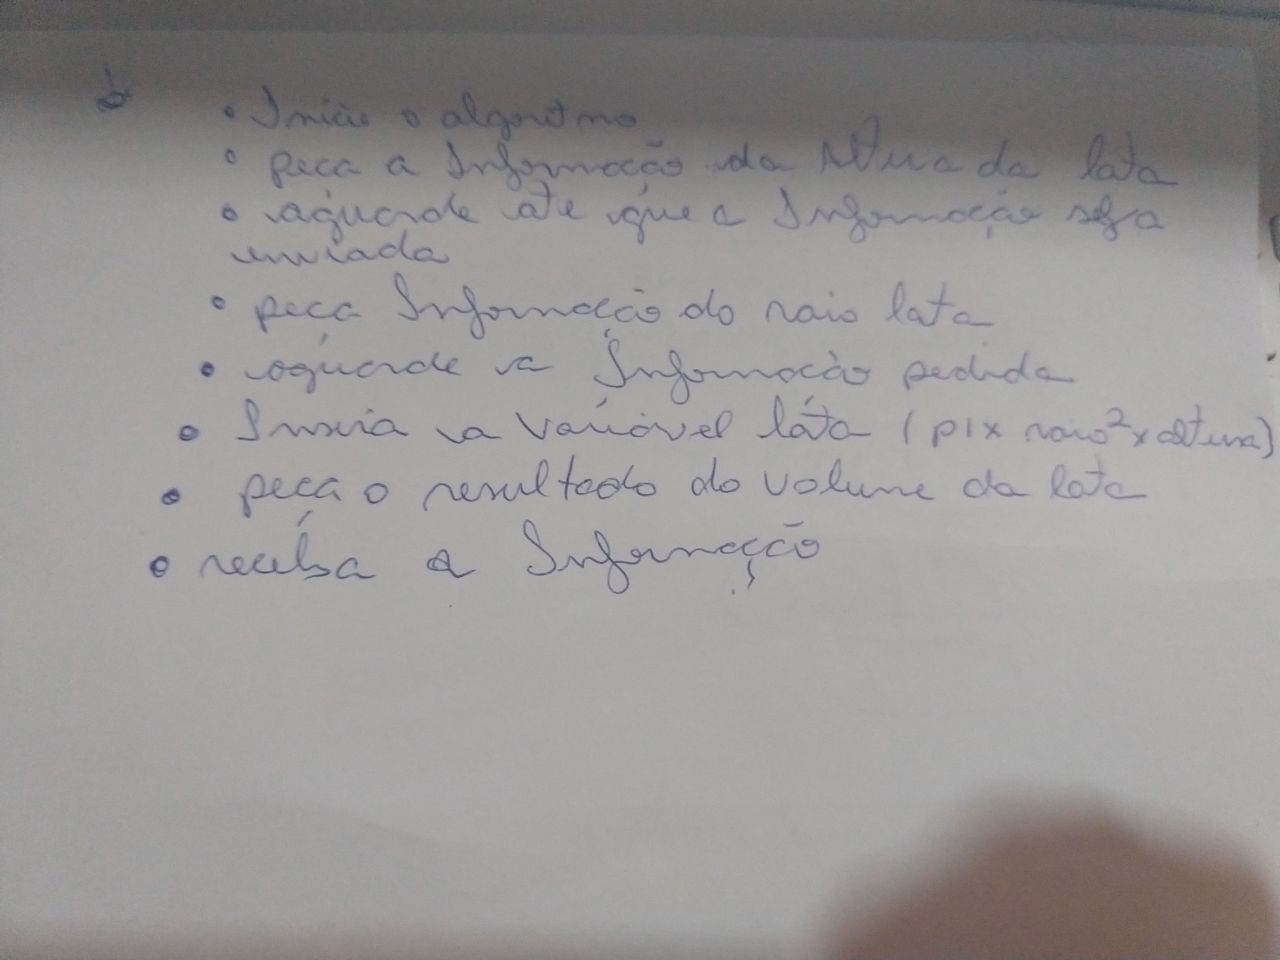 b
• Inicie o algoritmo
• peça a Informação da Altura da lata
• aguarde até que a Informação seja
enviada
• peça Informação do raio lata
• aguarde a Informação pedida
• Insira a variável lata (pi x raio² x altura)
• peça o resultado do volume da lata
• receba a Informação